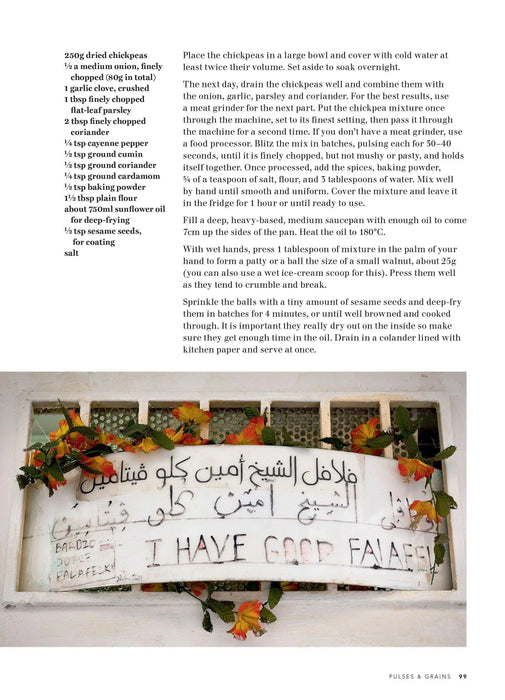 250g dried chickpeas
½ a medium onion, finely
chopped (80g in total)
1 garlic clove, crushed
1 tbsp finely chopped
flat-leaf parsley
2 tbsp finely chopped
coriander
¼ tsp cayenne pepper
½ tsp ground cumin
½ tsp ground coriander
¼ tsp ground cardamom
½ tsp baking powder
1½ tbsp plain flour
about 750ml sunflower oil
for deep-frying
½ tsp sesame seeds,
for coating
salt
Place the chickpeas in a large bowl and cover with cold water at
least twice their volume. Set aside to soak overnight.
The next day, drain the chickpeas well and combine them with
the onion, garlic, parsley and coriander. For the best results, use
a meat grinder for the next part. Put the chickpea mixture once
through the machine, set to its finest setting, then pass it through
the machine for a second time. If you don't have a meat grinder, use
a food processor. Blitz the mix in batches, pulsing each for 30–40
seconds, until it is finely chopped, but not mushy or pasty, and holds
itself together. Once processed, add the spices, baking powder,
¾ of a teaspoon of salt, flour, and 3 tablespoons of water. Mix well
by hand until smooth and uniform. Cover the mixture and leave it
in the fridge for 1 hour or until ready to use.
Fill a deep, heavy-based, medium saucepan with enough oil to come
7cm up the sides of the pan. Heat the oil to 180°C.
With wet hands, press 1 tablespoon of mixture in the palm of your
hand to form a patty or a ball the size of a small walnut, about 25g
(you can also use a wet ice-cream scoop for this). Press them well
as they tend to crumble and break.
Sprinkle the balls with a tiny amount of sesame seeds and deep-fry
them in batches for 4 minutes, or until well browned and cooked
through. It is important they really dry out on the inside so make
sure they get enough time in the oil. Drain in a colander lined with
kitchen paper and serve at once.
فلافل الشيخ أمين كلو ڤيتامين
الشيخ امين كلو ڤيتامين
I HAVE GOOD FALAFEL
BARDZO
DOBRE
FALAFELKI
PULSES & GRAINS 99